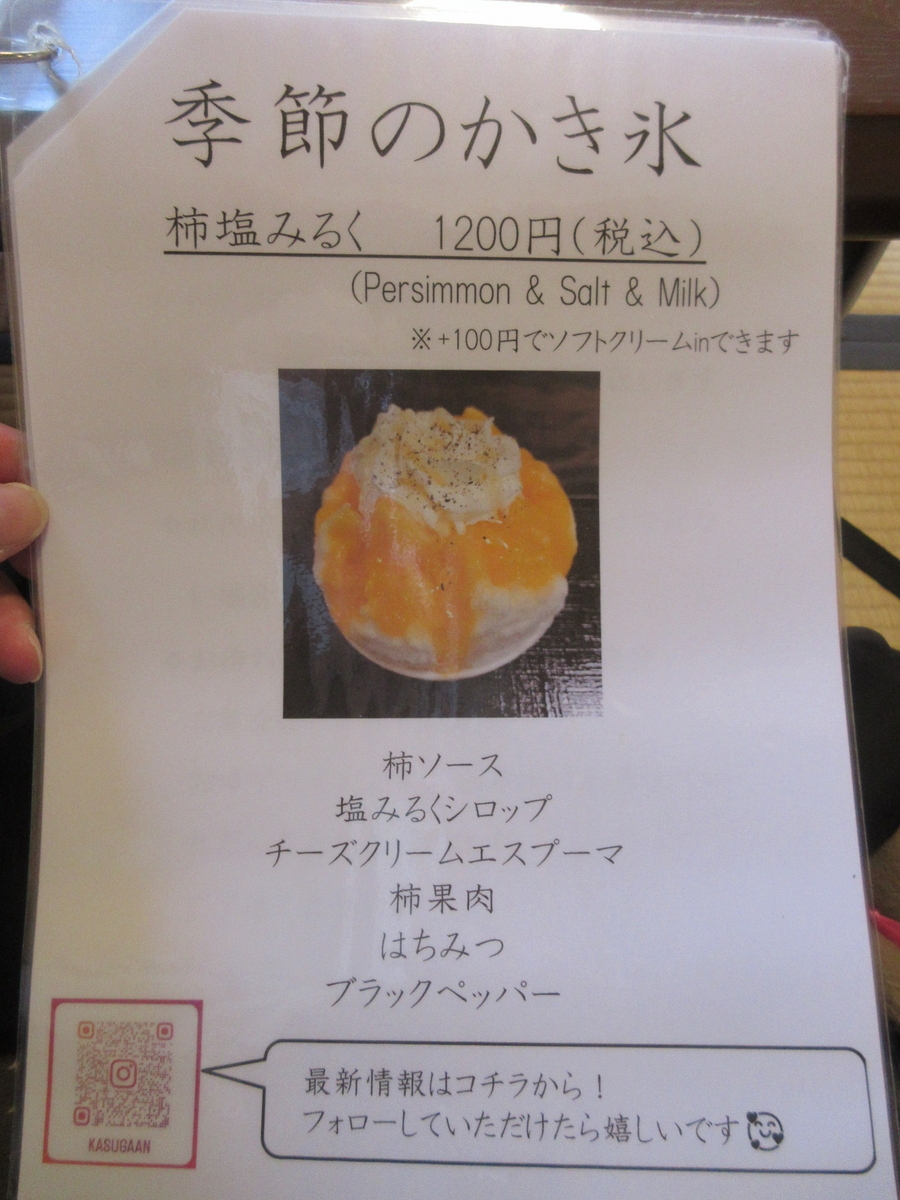 季節のかき氷
柿塩みるく 1200円(税込)
(Persimmon & Salt & Milk)
※+100円でソフトクリームinできます
柿ソース
塩みるくシロップ
チーズクリームエスプーマ
柿果肉
はちみつ
ブラックペッパー
最新情報はコチラから!
フォローしていただけたら嬉しいです🥰
KASUGAAN